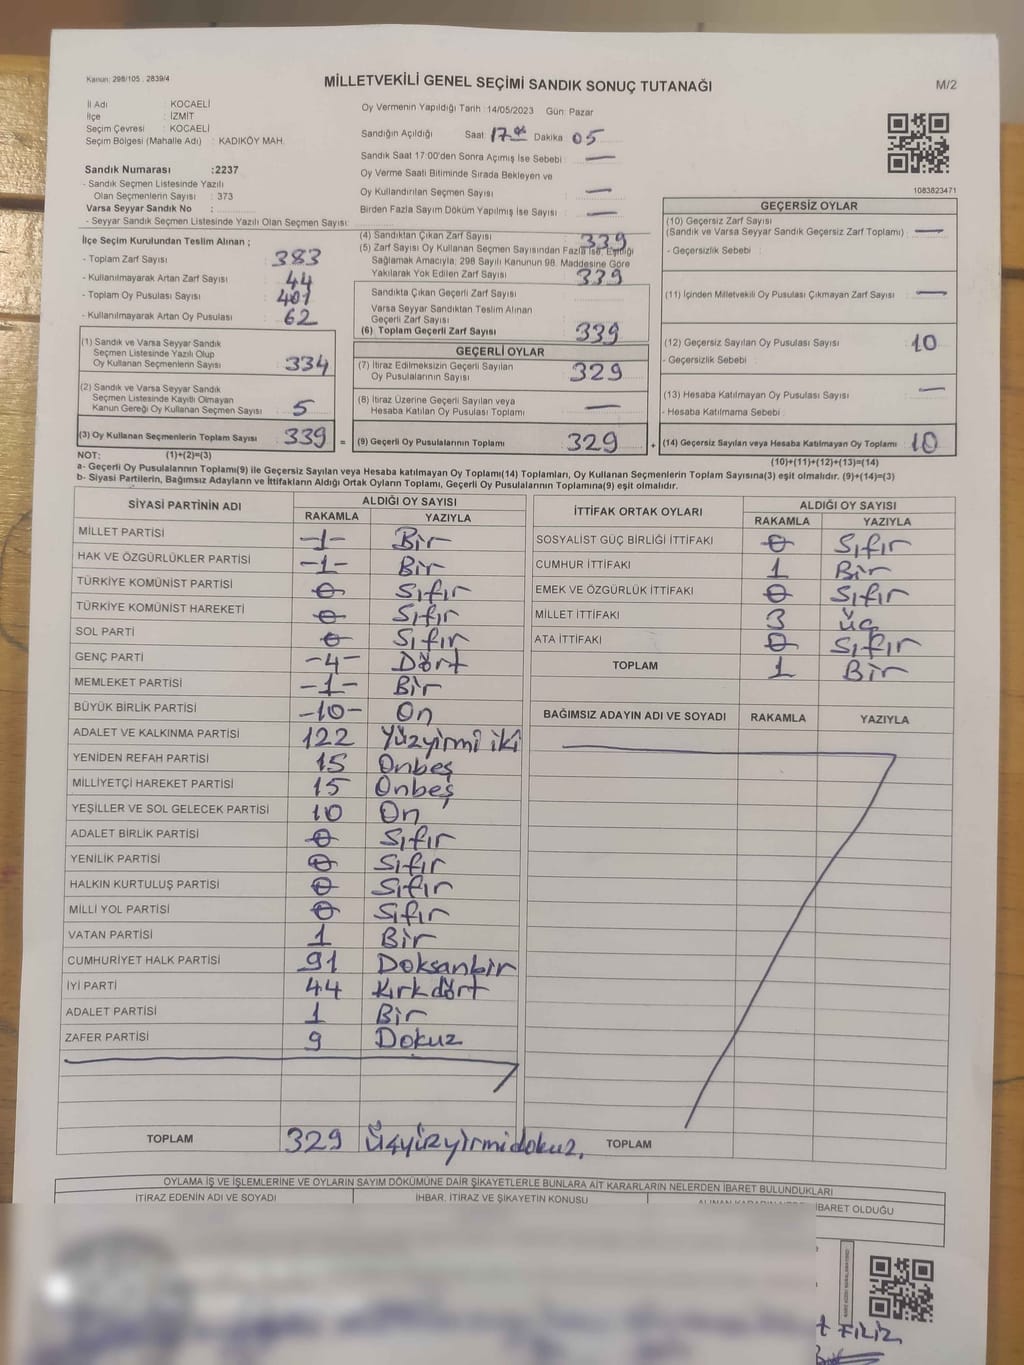 Kanun: 298/105 , 2839/4
MİLLETVEKİLİ GENEL SEÇİMİ SANDIK SONUÇ TUTANAĞI
M/2
İl Adı : KOCAELİ
İlçe : İZMİT
Seçim Çevresi : KOCAELİ
Seçim Bölgesi (Mahalle Adı) : KADIKÖY MAH.
Oy Vermenin Yapıldığı Tarih : 14/05/2023 Gün: Pazar
Sandığın Açıldığı Saat: 17.00 Dakika 05
Sandık Saat 17:00'den Sonra Açımış İse Sebebi : —
Oy Verme Saati Bitiminde Sırada Bekleyen ve
Oy Kullandırılan Seçmen Sayısı : —
Birden Fazla Sayım Döküm Yapılmış İse Sayısı : —
1083823471
Sandık Numarası :2237
- Sandık Seçmen Listesinde Yazılı
Olan Seçmenlerin Sayısı : 373
Varsa Seyyar Sandık No :
- Seyyar Sandık Seçmen Listesinde Yazılı Olan Seçmen Sayısı:
İlçe Seçim Kurulundan Teslim Alınan ;
- Toplam Zarf Sayısı : 383
- Kullanılmayarak Artan Zarf Sayısı : 44
- Toplam Oy Pusulası Sayısı : 401
- Kullanılmayarak Artan Oy Pusulası : 62
(1) Sandık ve Varsa Seyyar Sandık
Seçmen Listesinde Yazılı Olup
Oy Kullanan Seçmenlerin Sayısı : 334
(2) Sandık ve Varsa Seyyar Sandık
Seçmen Listesinde Kayıtlı Olmayan
Kanun Gereği Oy Kullanan Seçmen Sayısı : 5
(3) Oy Kullanan Seçmenlerin Toplam Sayısı : 339 =
(4) Sandıktan Çıkan Zarf Sayısı : 339
(5) Zarf Sayısı Oy Kullanan Seçmen Sayısından Fazla İse, Eşitliği
Sağlamak Amacıyla; 298 Sayılı Kanunun 98. Maddesine Göre
Yakılarak Yok Edilen Zarf Sayısı : 339
Sandıkta Çıkan Geçerli Zarf Sayısı :
Varsa Seyyar Sandıktan Teslim Alınan
Geçerli Zarf Sayısı :
(6) Toplam Geçerli Zarf Sayısı : 339
GEÇERLİ OYLAR
(7) İtiraz Edilmeksizin Geçerli Sayılan
Oy Pusulalarının Sayısı : 329
(8) İtiraz Üzerine Geçerli Sayılan veya
Hesaba Katılan Oy Pusulası Toplamı : —
(9) Geçerli Oy Pusulalarının Toplamı : 329 +
GEÇERSİZ OYLAR
(10) Geçersiz Zarf Sayısı
(Sandık ve Varsa Seyyar Sandık Geçersiz Zarf Toplamı) : —
- Geçersizlik Sebebi :
(11) İçinden Milletvekili Oy Pusulası Çıkmayan Zarf Sayısı : —
(12) Geçersiz Sayılan Oy Pusulası Sayısı : 10
- Geçersizlik Sebebi :
(13) Hesaba Katılmayan Oy Pusulası Sayısı : —
- Hesaba Katılmama Sebebi :
(14) Geçersiz Sayılan veya Hesaba Katılmayan Oy Toplamı : 10
NOT: (1)+(2)=(3)
(10)+(11)+(12)+(13)=(14)
a- Geçerli Oy Pusulalarının Toplamı(9) ile Geçersiz Sayılan veya Hesaba katılmayan Oy Toplamı(14) Toplamları, Oy Kullanan Seçmenlerin Toplam Sayısına(3) eşit olmalıdır. (9)+(14)=(3)
b- Siyasi Partilerin, Bağımsız Adayların ve İttifakların Aldığı Ortak Oyların Toplamı, Geçerli Oy Pusulalarının Toplamına(9) eşit olmalıdır.
SİYASİ PARTİNİN ADI ALDIĞI OY SAYISI
RAKAMLA YAZIYLA
MİLLET PARTİSİ -1- Bir
HAK VE ÖZGÜRLÜKLER PARTİSİ -1- Bir
TÜRKİYE KOMÜNİST PARTİSİ 0 Sıfır
TÜRKİYE KOMÜNİST HAREKETİ 0 Sıfır
SOL PARTİ 0 Sıfır
GENÇ PARTİ -4- Dört
MEMLEKET PARTİSİ -1- Bir
BÜYÜK BİRLİK PARTİSİ -10- On
ADALET VE KALKINMA PARTİSİ 122 Yüzyirmi iki
YENİDEN REFAH PARTİSİ 15 Onbeş
MİLLİYETÇİ HAREKET PARTİSİ 15 Onbeş
YEŞİLLER VE SOL GELECEK PARTİSİ 10 On
ADALET BİRLİK PARTİSİ 0 Sıfır
YENİLİK PARTİSİ 0 Sıfır
HALKIN KURTULUŞ PARTİSİ 0 Sıfır
MİLLİ YOL PARTİSİ 0 Sıfır
VATAN PARTİSİ 1 Bir
CUMHURİYET HALK PARTİSİ 91 Doksanbir
İYİ PARTİ 44 Kırkdört
ADALET PARTİSİ 1 Bir
ZAFER PARTİSİ 9 Dokuz
TOPLAM 329 Üçyüzyirmidokuz.
İTTİFAK ORTAK OYLARI ALDIĞI OY SAYISI
RAKAMLA YAZIYLA
SOSYALİST GÜÇ BİRLİĞİ İTTİFAKI 0 Sıfır
CUMHUR İTTİFAKI 1 Bir
EMEK VE ÖZGÜRLÜK İTTİFAKI 0 Sıfır
MİLLET İTTİFAKI 3 Üç
ATA İTTİFAKI 0 Sıfır
TOPLAM 1 Bir
BAĞIMSIZ ADAYIN ADI VE SOYADI RAKAMLA YAZIYLA
TOPLAM
OYLAMA İŞ VE İŞLEMLERİNE VE OYLARIN SAYIM DÖKÜMÜNE DAİR ŞİKAYETLERLE BUNLARA AİT KARARLARIN NELERDEN İBARET BULUNDUKLARI
İTİRAZ EDENİN ADI VE SOYADI İHBAR, İTİRAZ VE ŞİKAYETİN KONUSU ALINAN KARARIN İBARET OLDUĞU
t FİLİZ